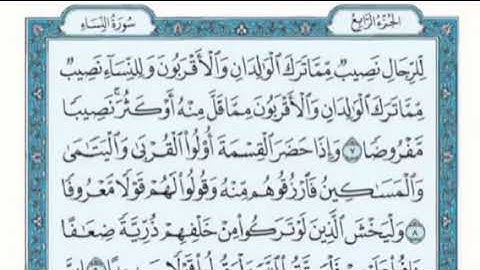 الجزء الرابع
سورة النساء
لِّلرِّجَالِ نَصِيبٌ مِّمَّا تَرَكَ الْوَالِدَانِ وَالْأَقْرَبُونَ وَلِلنِّسَاءِ نَصِيبٌ
مِّمَّا تَرَكَ الْوَالِدَانِ وَالْأَقْرَبُونَ مِمَّا قَلَّ مِنْهُ أَوْ كَثُرَ ۚ نَصِيبًا
مَّفْرُوضًا ٧ وَإِذَا حَضَرَ الْقِسْمَةَ أُولُوا الْقُرْبَىٰ وَالْيَتَامَىٰ
وَالْمَسَاكِينُ فَارْزُقُوهُم مِّنْهُ وَقُولُوا لَهُمْ قَوْلًا مَّعْرُوفًا
٨ وَلْيَخْشَ الَّذِينَ لَوْ تَرَكُوا مِنْ خَلْفِهِمْ ذُرِّيَّةً ضِعَافًا